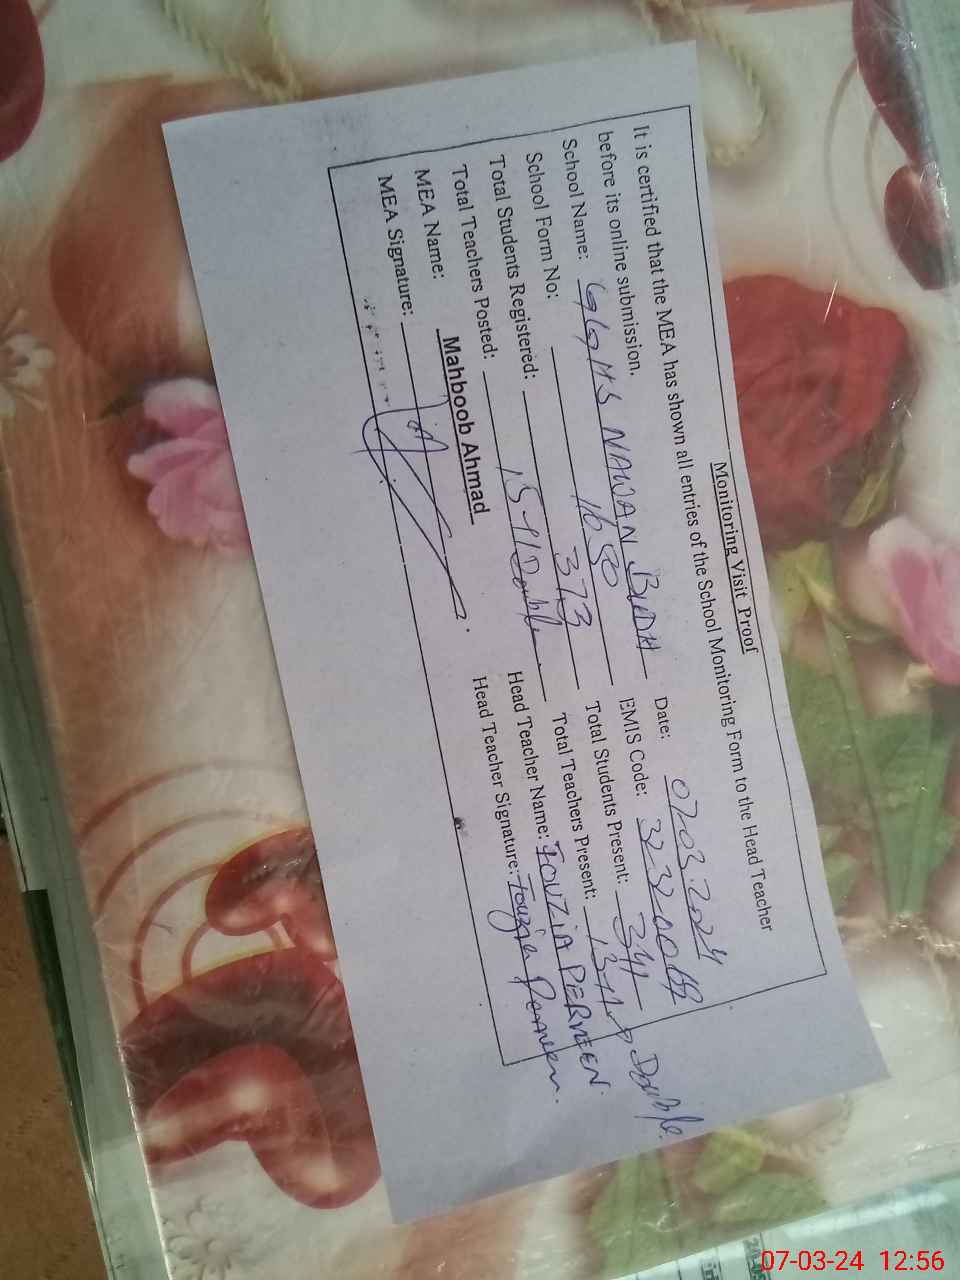 Monitoring Visit Proof
It is certified that the MEA has shown all entries of the School Monitoring Form to the Head Teacher
before its online submission.
School Name: GGHS NAWAN Date: 07.03.2024
School Form No: 1650 EMIS Code:
Total Students Registered: 373 Total Students Present: 341
Total Teachers Posted: 15 Double Total Teachers Present: 13 Double
MEA Name: Mahboob Ahmad Head Teacher Name: FOUZIA PERVEEN
MEA Signature: Head Teacher Signature: Fouzia Perveen.
07-03-24 12:56